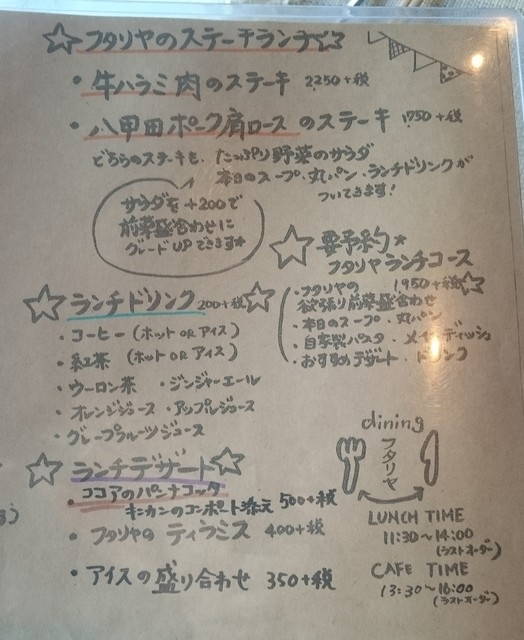 ☆フタリヤのステーキランチ☆
・牛ハラミ肉のステーキ 2250+税
・八甲田ポーク肩ロースのステーキ 1750+税
どちらのステーキも、たっぷり野菜のサラダ
本日のスープ・丸パン・ランチドリンクが
ついてきます!
サラダを+200で
前菜盛合わせに
グレードUPできます☆
☆要予約☆
フタリヤランチコース
1950+税☆
・フタリヤの
欲張り前菜盛合わせ
・本日のスープ・丸パン
・自家製パスタ・メインディッシュ
・おすすめデザート・ドリンク
☆ランチドリンク 200+税☆
・コーヒー(ホット OR アイス)
・紅茶 (ホット OR アイス)
・ウーロン茶 ・ジンジャーエール
・オレンジジュース ・アップルジュース
・グレープフルーツジュース
☆ランチデザート☆
・ココアのパンナコッタ
キンカンのコンポート添え 500+税
・フタリヤのティラミス 400+税
・アイスの盛り合わせ 350+税
dining
フタリヤ
LUNCH TIME
11:30~14:00
(ラストオーダー)
CAFE TIME
13:30~16:00
(ラストオーダー)